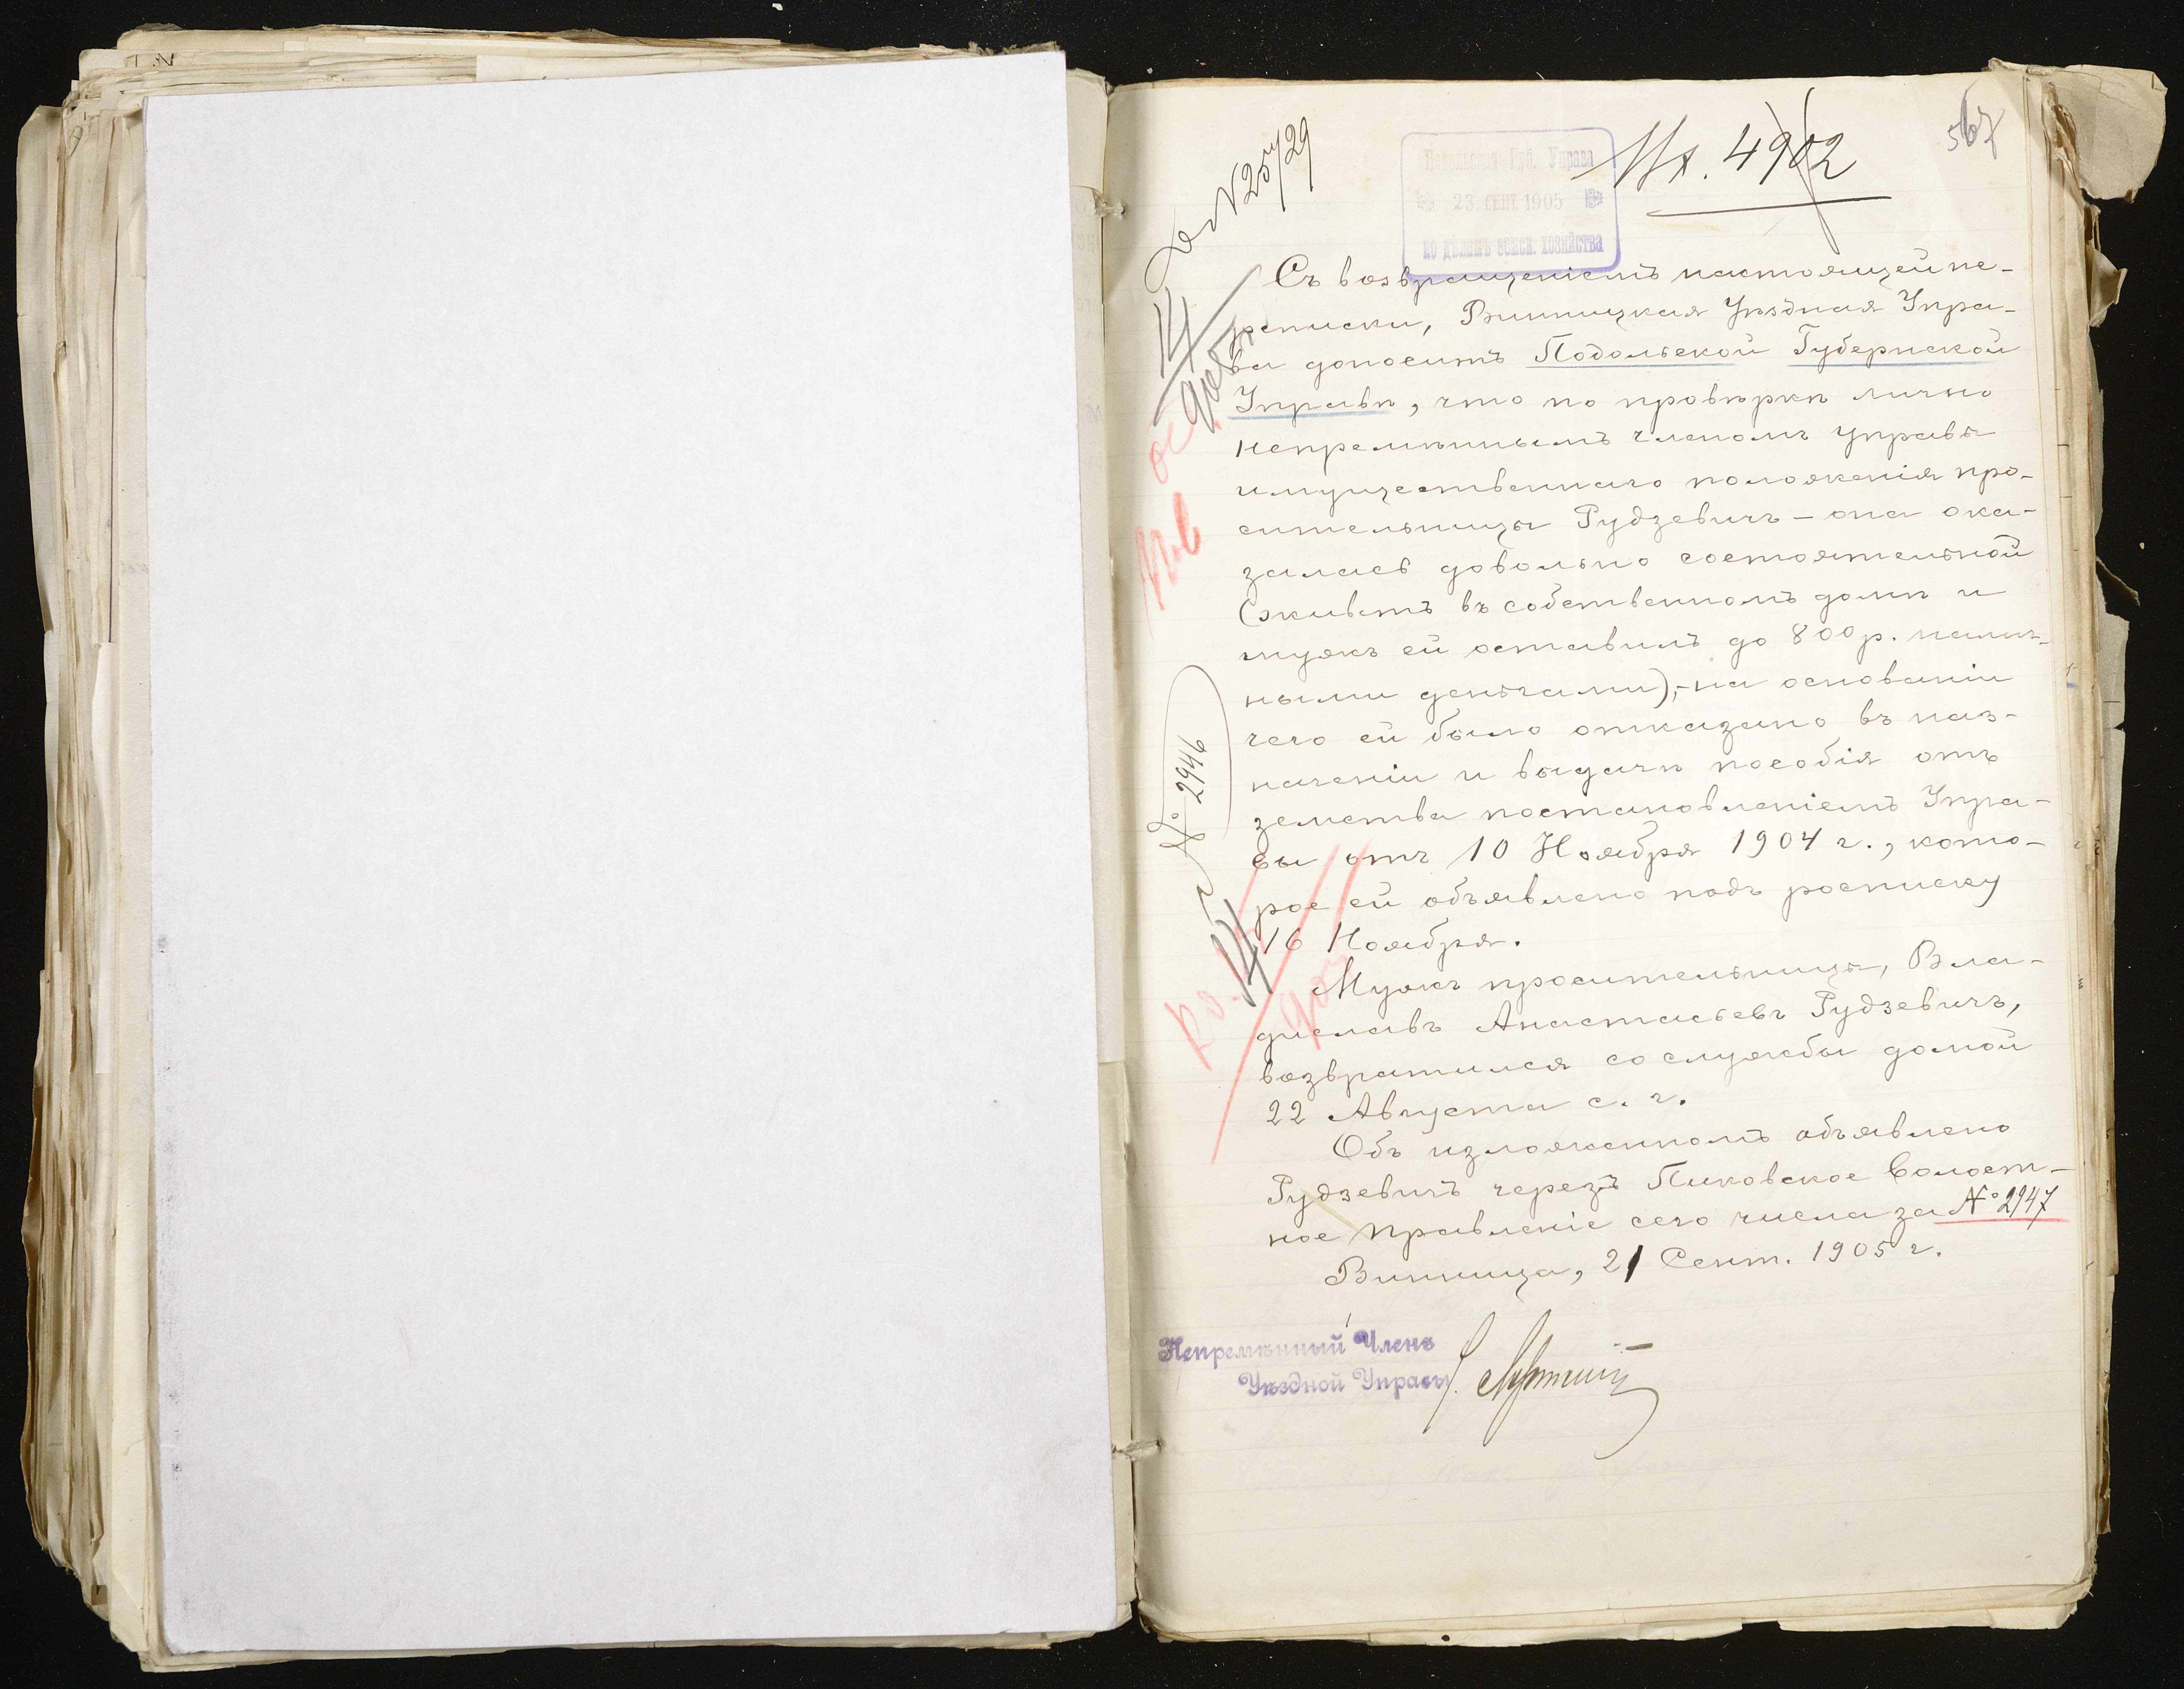 567
Вх. 4902
Подольская Губ. Управа
23. СЕНТ. 1905
по дѣламъ земск. хозяйства
№ 25/29
Съ возвращеніемъ настоящей пе-
реписки, Винницкая Уѣздная Упра-
ва доноситъ Подольской Губернской
Управѣ, что по провѣркѣ лично
непремѣннымъ членомъ управы
имущественнаго положенія про-
сительницы Рудзевичъ – она ока-
залась довольно состоятельной
(живетъ въ собственномъ домѣ и
мужъ ей оставилъ до 800 р. налич-
ными деньгами),-на основаніи
чего ей было отказано въ наз-
наченіи и выдачѣ пособія отъ
земства постановленіемъ Упра-
вы отъ 10 Ноября 1904 г., кото-
рое ей объявлено подъ росписку
16 Ноября.
Мужъ просительницы, Вла-
диславъ Анастасьевъ Рудзевичъ,
возвратился со службы домой
22 Августа с. г.
Объ изложенномъ объявлено
Рудзевичъ черезъ Пиковское Волост-
ное Правленіе сего числа за № 2947
Винница, 21 Сент. 1905 г.
№ 2946
Непремѣнный Членъ
Уѣздной Управы